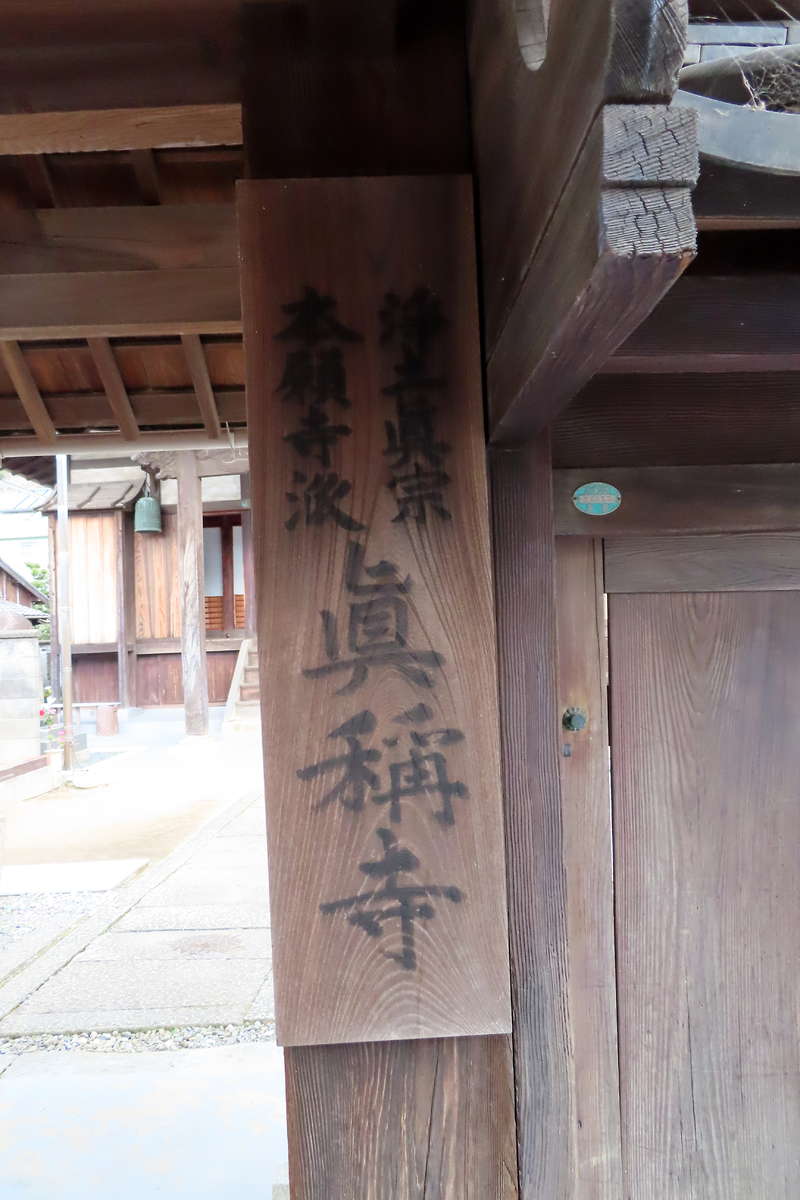 浄土眞宗
本願寺派
眞稱寺